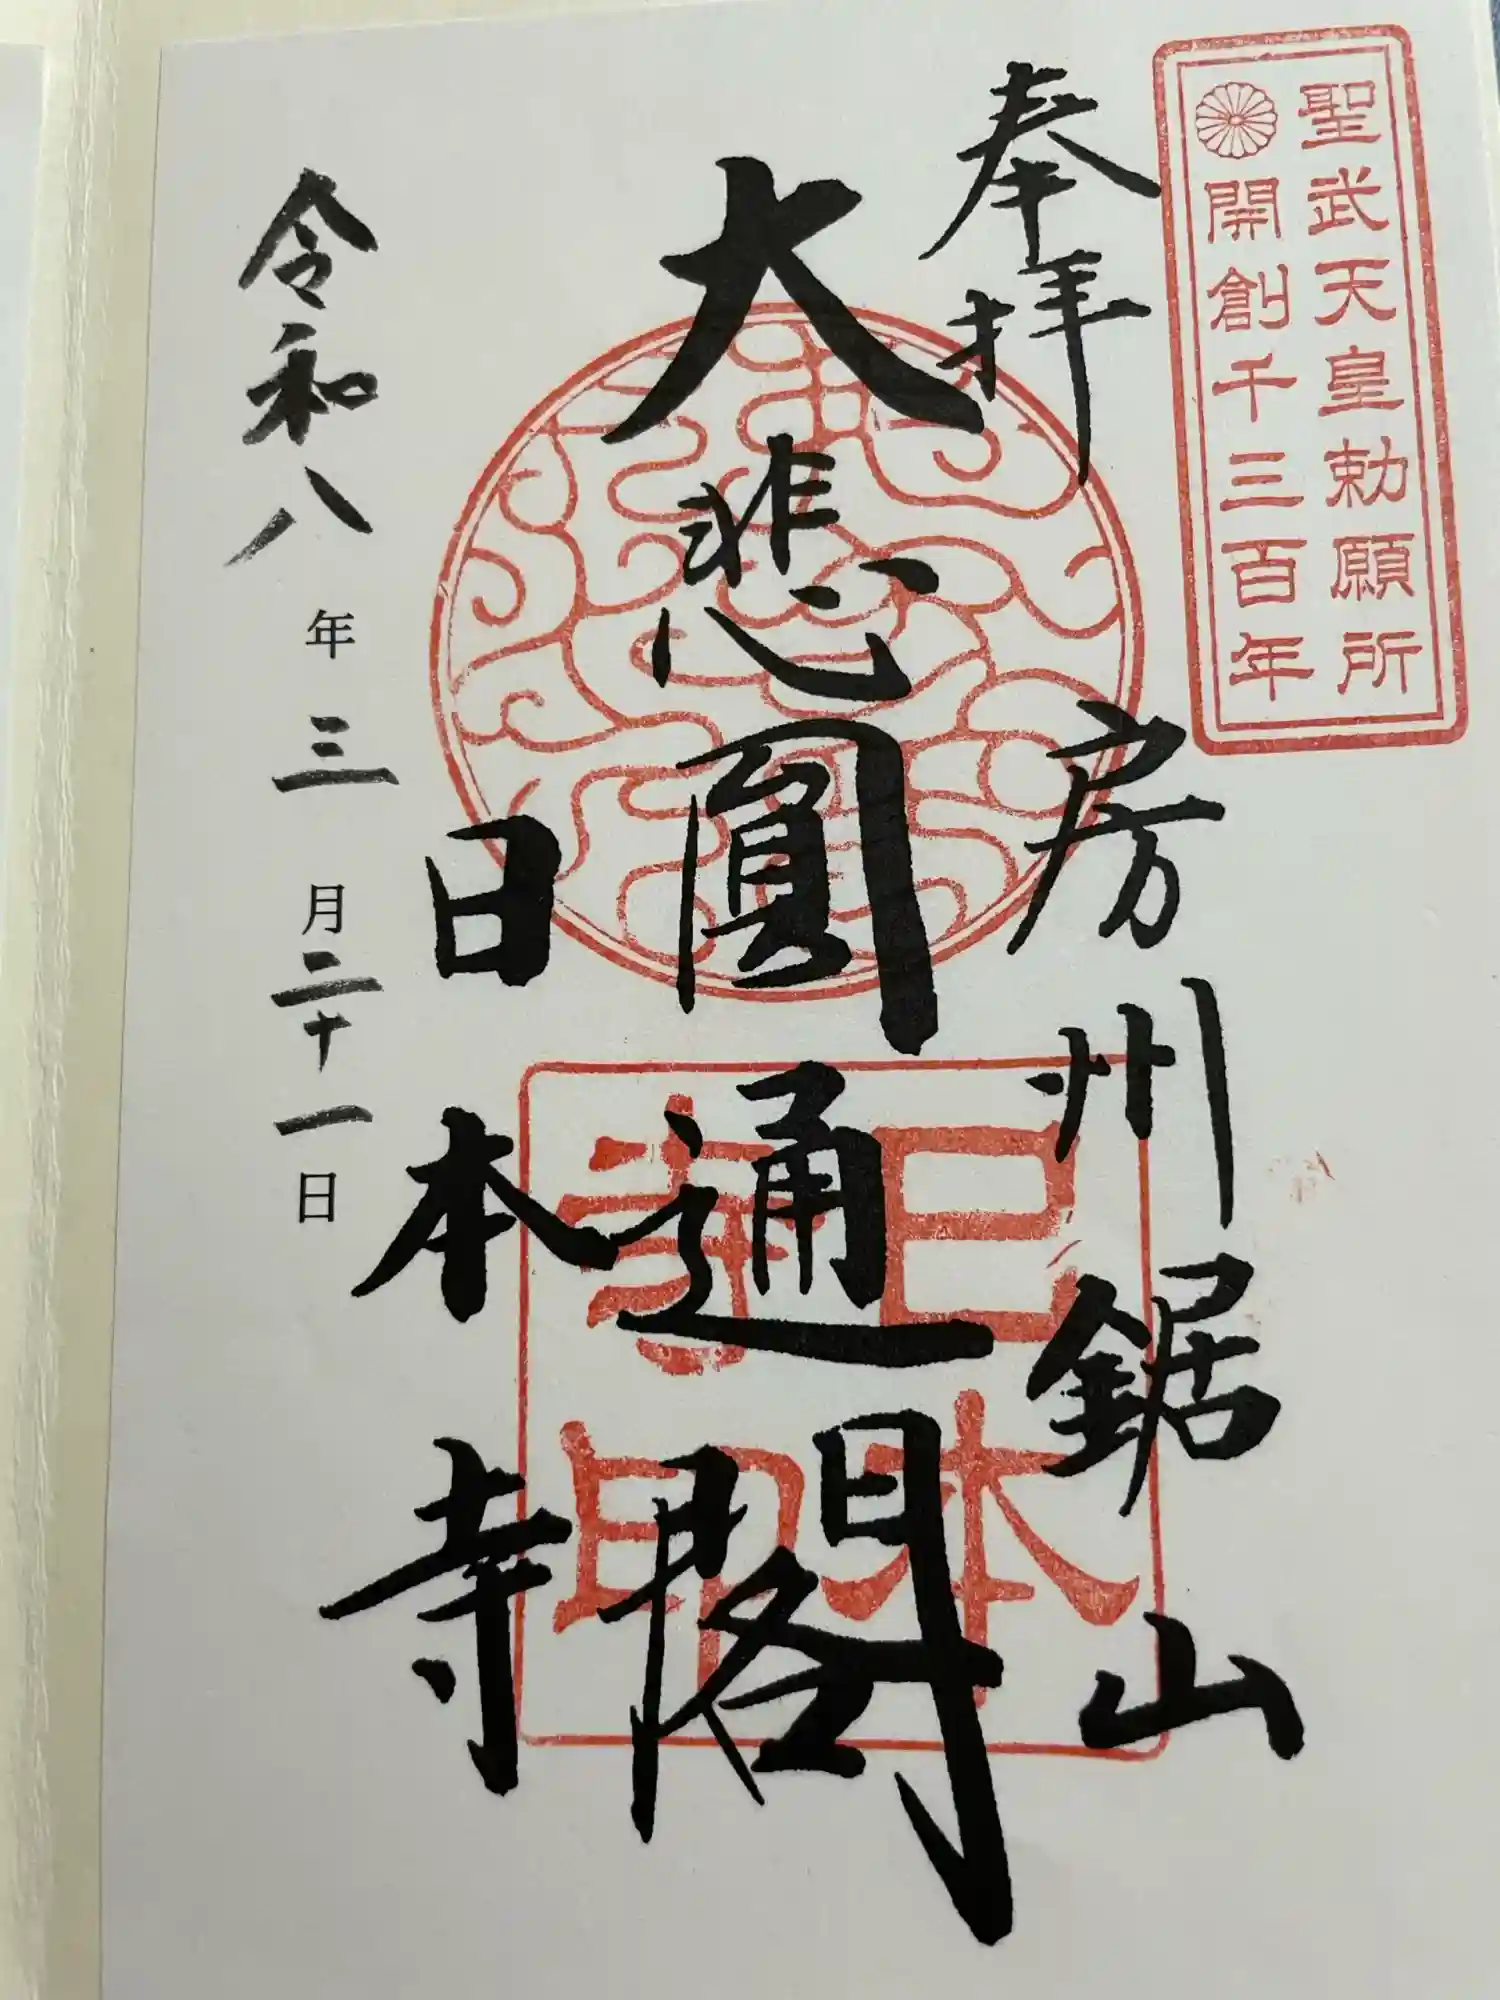 聖武天皇勅願所
開創千三百年
奉拝
房州鋸山
大悲圓通閣
日本寺
令和八年三月二十一日
日本寺印